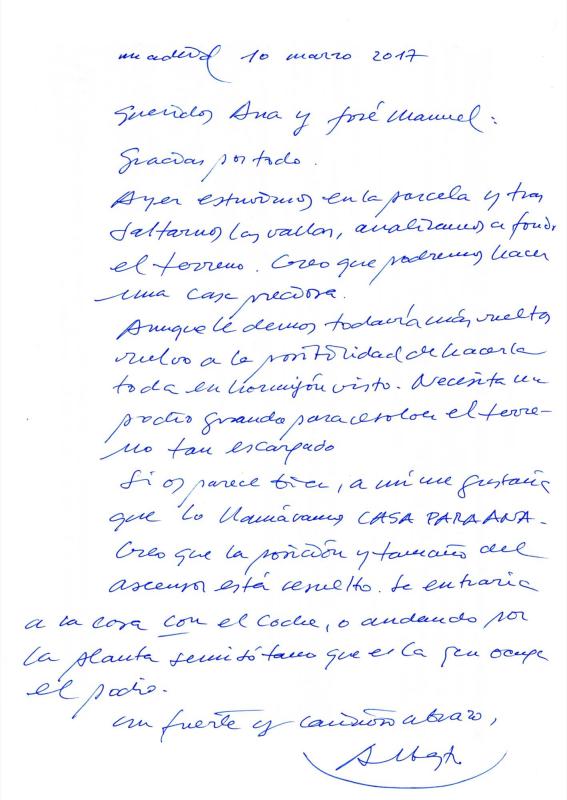 madrid 10 marzo 2017
Queridos Ana y José Manuel:
Gracias por todo.
Ayer estuvimos en la parcela y tras
saltarnos las vallas, analizamos a fondo
el terreno. Creo que podremos hacer
una casa preciosa.
Aunque le demos todavía más vueltas
vuelvo a la posibilidad de hacerla
toda en hormigón visto. Necesita un
podio grande para resolver el terre-
no tan escarpado
Si os parece bien, a mí me gustaría
que lo llamáramos CASA PARA ANA.
Creo que la posición y tamaño del
ascensor está resuelto. Se entraría
a la casa con el coche, o andando por
la planta semisótano que es la que ocupa
el podio.
un fuerte y cariñoso abrazo,
Alberto